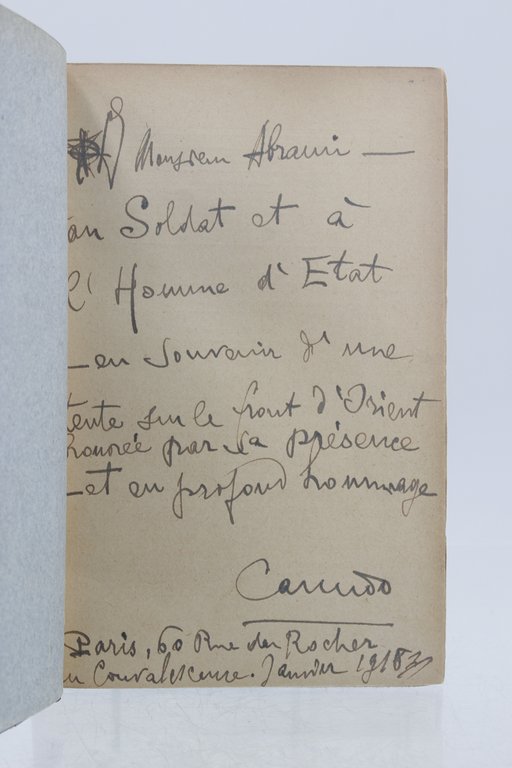 Monsieur Abrami —
au Soldat et à
l'Homme d'Etat
— en souvenir d'une
tente sur le front d'Orient
honorée par sa présence
— et en profond hommage
Canudo
Paris, 60 Rue du Rocher
en Convalescence. Janvier 1918